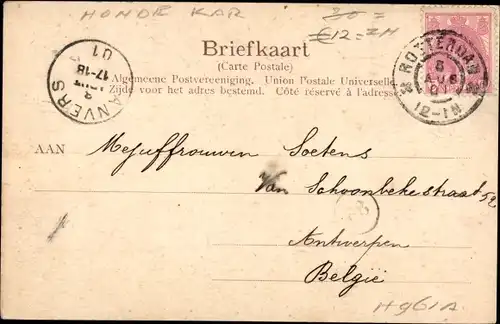 HONDE KAR
20 =
€12 = ZH
Briefkaart
(Carte Postale)
Algemeene Postvereeniging. Union Postale Universelle
Zijde voor het adres bestemd. Côté réservé à l'adresse
ROTTERDAM
8
AUG
01
12-1N
ANVERS
8
17-18
01
AAN Mejuffrouwen Soetens
Van Schoonbekestraat 52
Antwerpen
België
H961A